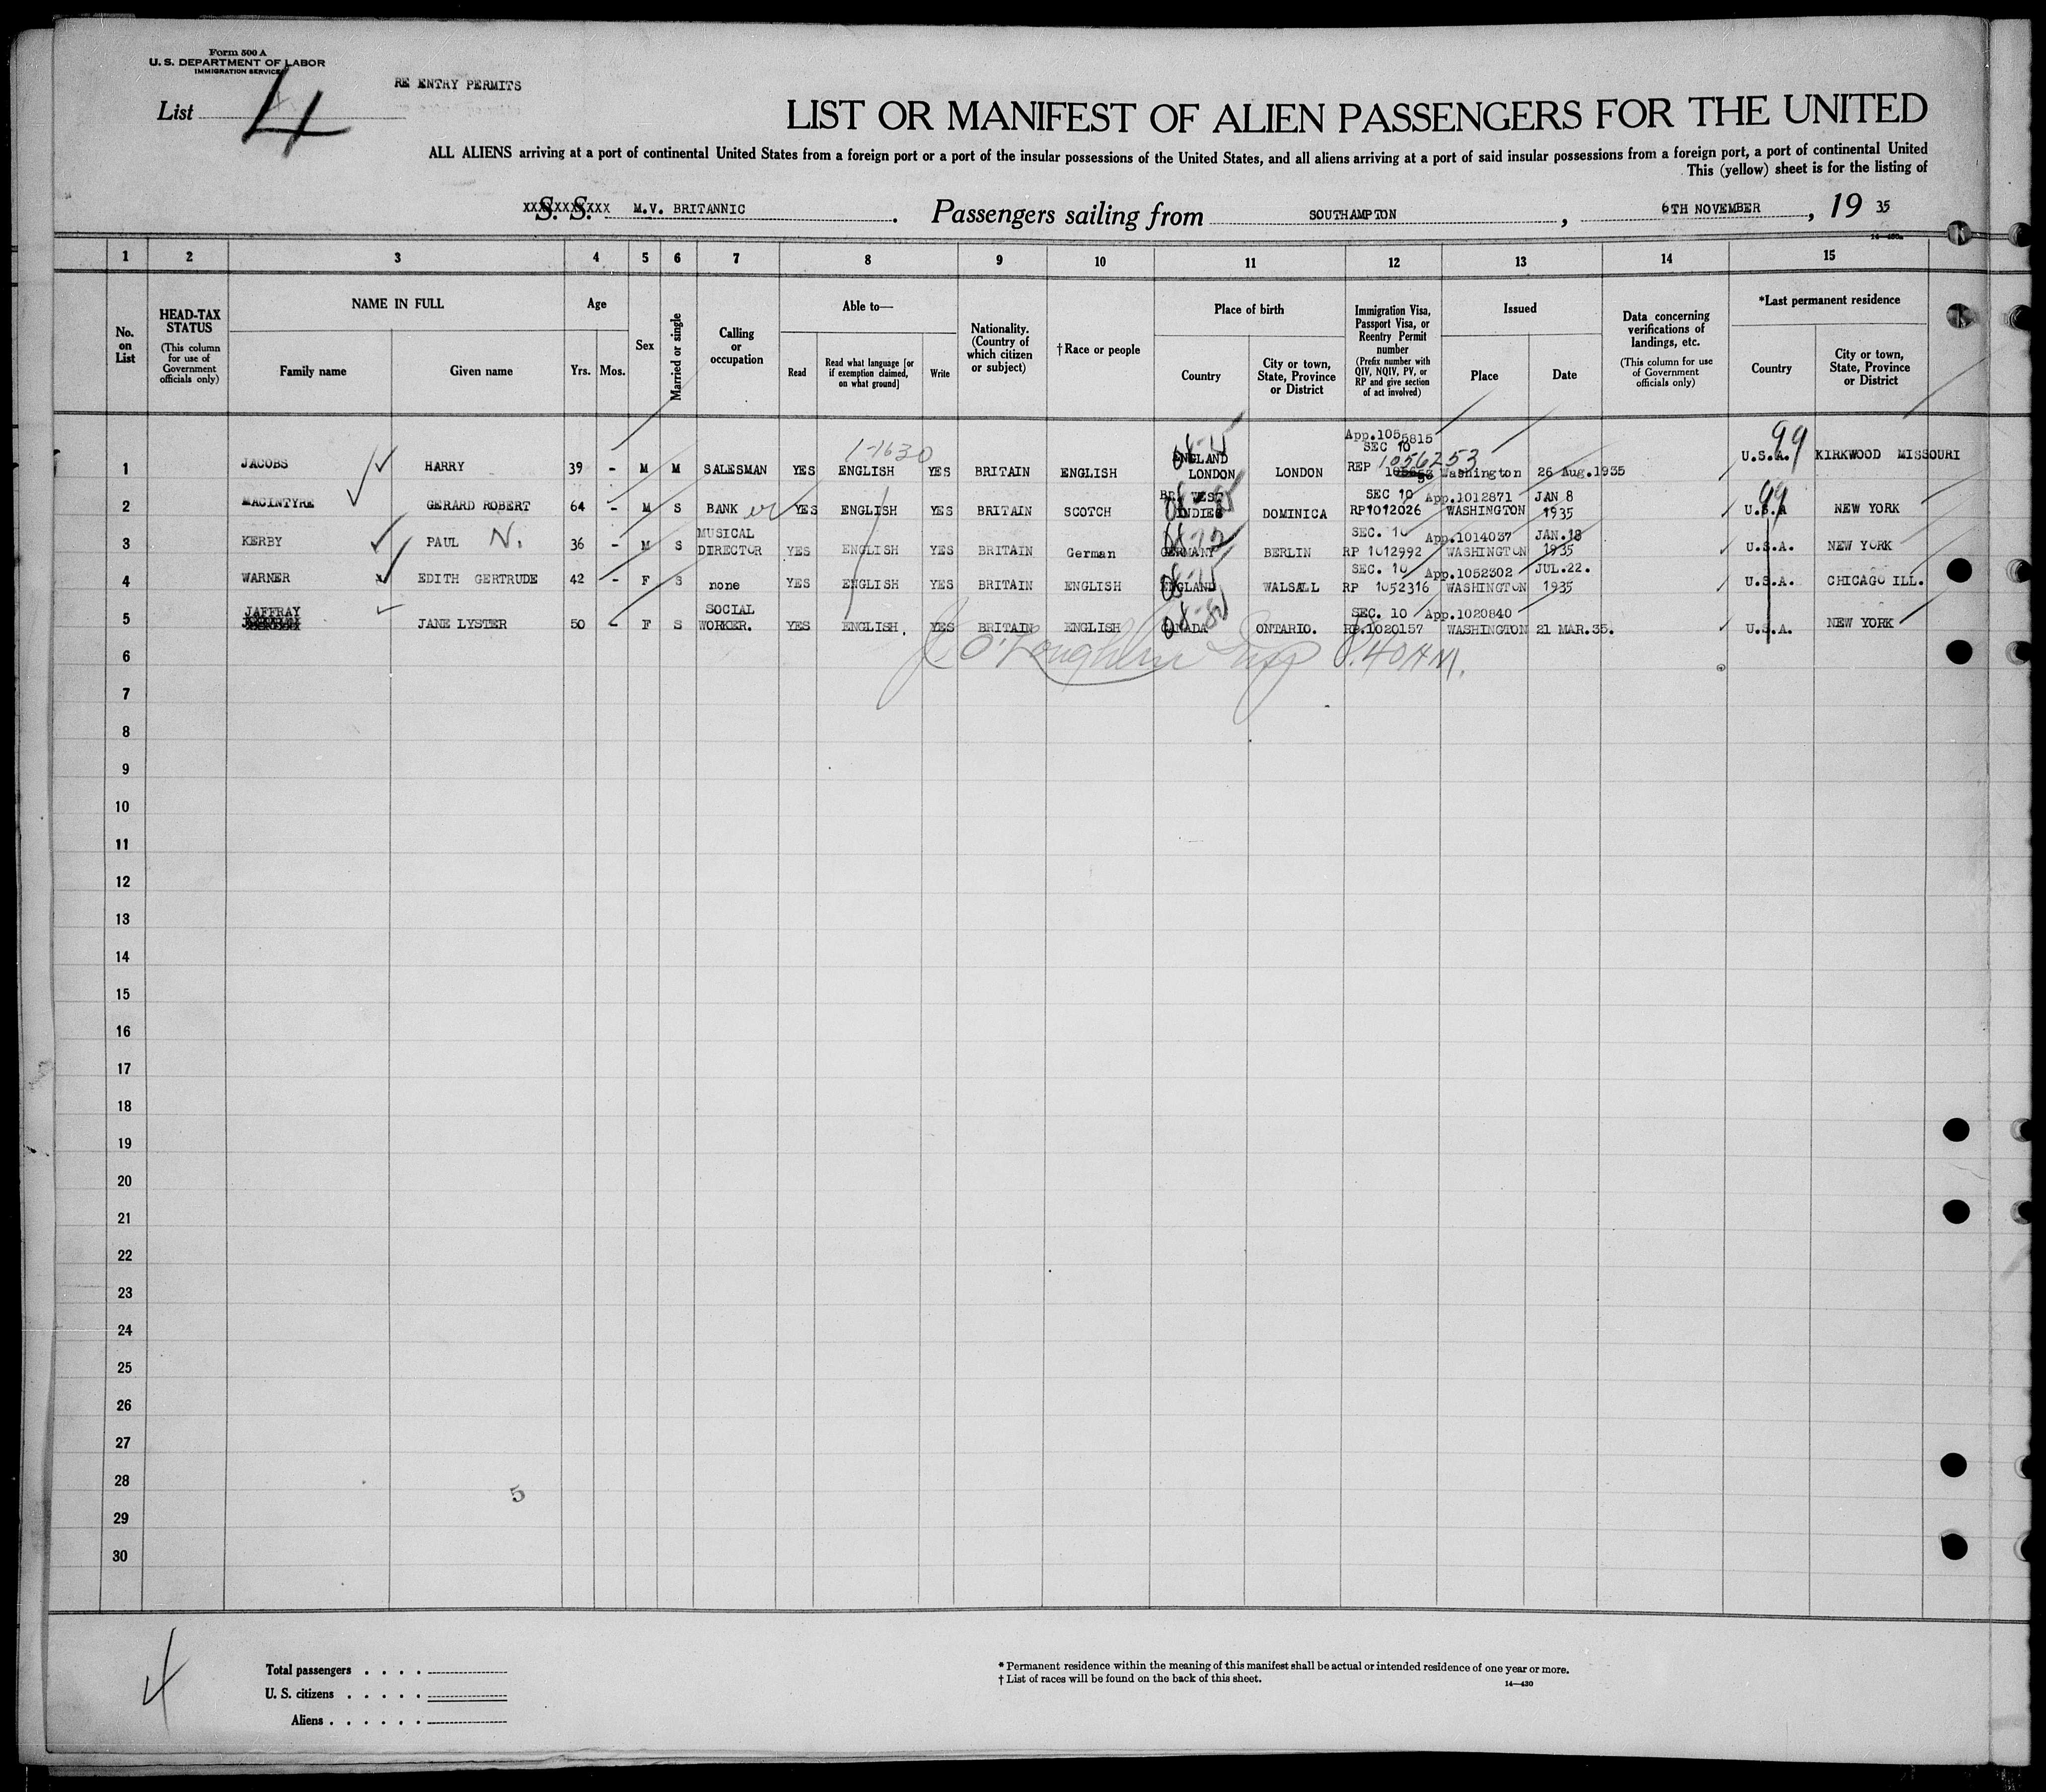 Form 500 A
U. S. DEPARTMENT OF LABOR
IMMIGRATION SERVICE
RE ENTRY PERMITS
List 4
LIST OR MANIFEST OF ALIEN PASSENGERS FOR THE UNITED
ALL ALIENS arriving at a port of continental United States from a foreign port or a port of the insular possessions of the United States, and all aliens arriving at a port of said insular possessions from a foreign port, a port of continental United
This (yellow) sheet is for the listing of
S. S. M.V. BRITANNIC. Passengers sailing from SOUTHAMPTON, 6TH NOVEMBER, 19 35
1 2 3 4 5 6 7 8 9 10 11 12 13 14 15
No. on List
HEAD-TAX STATUS (This column for use of Government officials only)
NAME IN FULL
Family name
Given name
Age
Yrs. Mos.
Sex
Married or single
Calling or occupation
Able to—
Read
Read what language [or if exemption claimed, on what ground]
Write
Nationality. (Country of which citizen or subject)
†Race or people
Place of birth
Country
City or town, State, Province or District
Immigration Visa, Passport Visa, or Reentry Permit number (Prefix number with QIV, NQIV, PV, or RP and give section of act involved)
Issued
Place
Date
Data concerning verifications of landings, etc. (This column for use of Government officials only)
*Last permanent residence
Country
City or town, State, Province or District
1-1630
App.1055815
SEC 10
99
1 JACOBS HARRY 39 - M M SALESMAN YES ENGLISH YES BRITAIN ENGLISH ENGLAND LONDON LONDON REP 1056253 Washington 26 Aug.1935 U.S.A. KIRKWOOD MISSOURI
BR. WEST SEC 10 App.1012871 JAN 8
99
2 MACINTYRE GERARD ROBERT 64 - M S BANK er YES ENGLISH YES BRITAIN SCOTCH INDIES DOMINICA RP1012026 WASHINGTON 1935 U.S.A NEW YORK
MUSICAL SEC. 10 App.1014037 JAN.18
3 KERBY PAUL N. 36 - M S DIRECTOR YES ENGLISH YES BRITAIN German GERMANY BERLIN RP 1012992 WASHINGTON 1935 U.S.A. NEW YORK
SEC. 10 App.1052302 JUL.22.
4 WARNER EDITH GERTRUDE 42 - F S none YES ENGLISH YES BRITAIN ENGLISH ENGLAND WALSALL RP 1052316 WASHINGTON 1935 U.S.A. CHICAGO ILL.
SOCIAL SEC. 10 App.1020840
5 JAFFRAY JANE LYSTER 50 - F S WORKER. YES ENGLISH. YES BRITAIN ENGLISH CANADA ONTARIO. RP.1020157 WASHINGTON 21 MAR.35. U.S.A. NEW YORK
6 O'Loughlin Insp 8.40 AM.
7
8
9
10
11
12
13
14
15
16
17
18
19
20
21
22
23
24
25
26
27
28
5
29
30
4
Total passengers
U. S. citizens
Aliens
* Permanent residence within the meaning of this manifest shall be actual or intended residence of one year or more.
† List of races will be found on the back of this sheet.
14—430